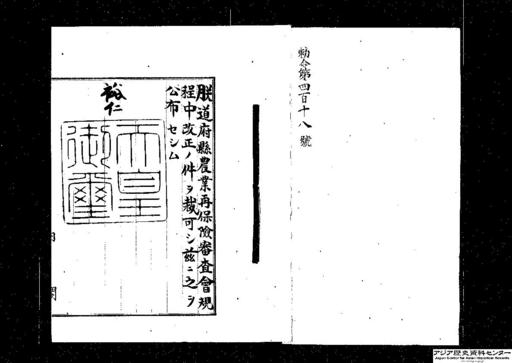 勅令第四百十八號
朕道府縣農業再保險審査會規
程中改正ノ件ヲ裁可シ茲ニ之ヲ
公布セシム
裕仁
天皇
御璽
アジア歴史資料センター
Japan Center for Asian Historical Records